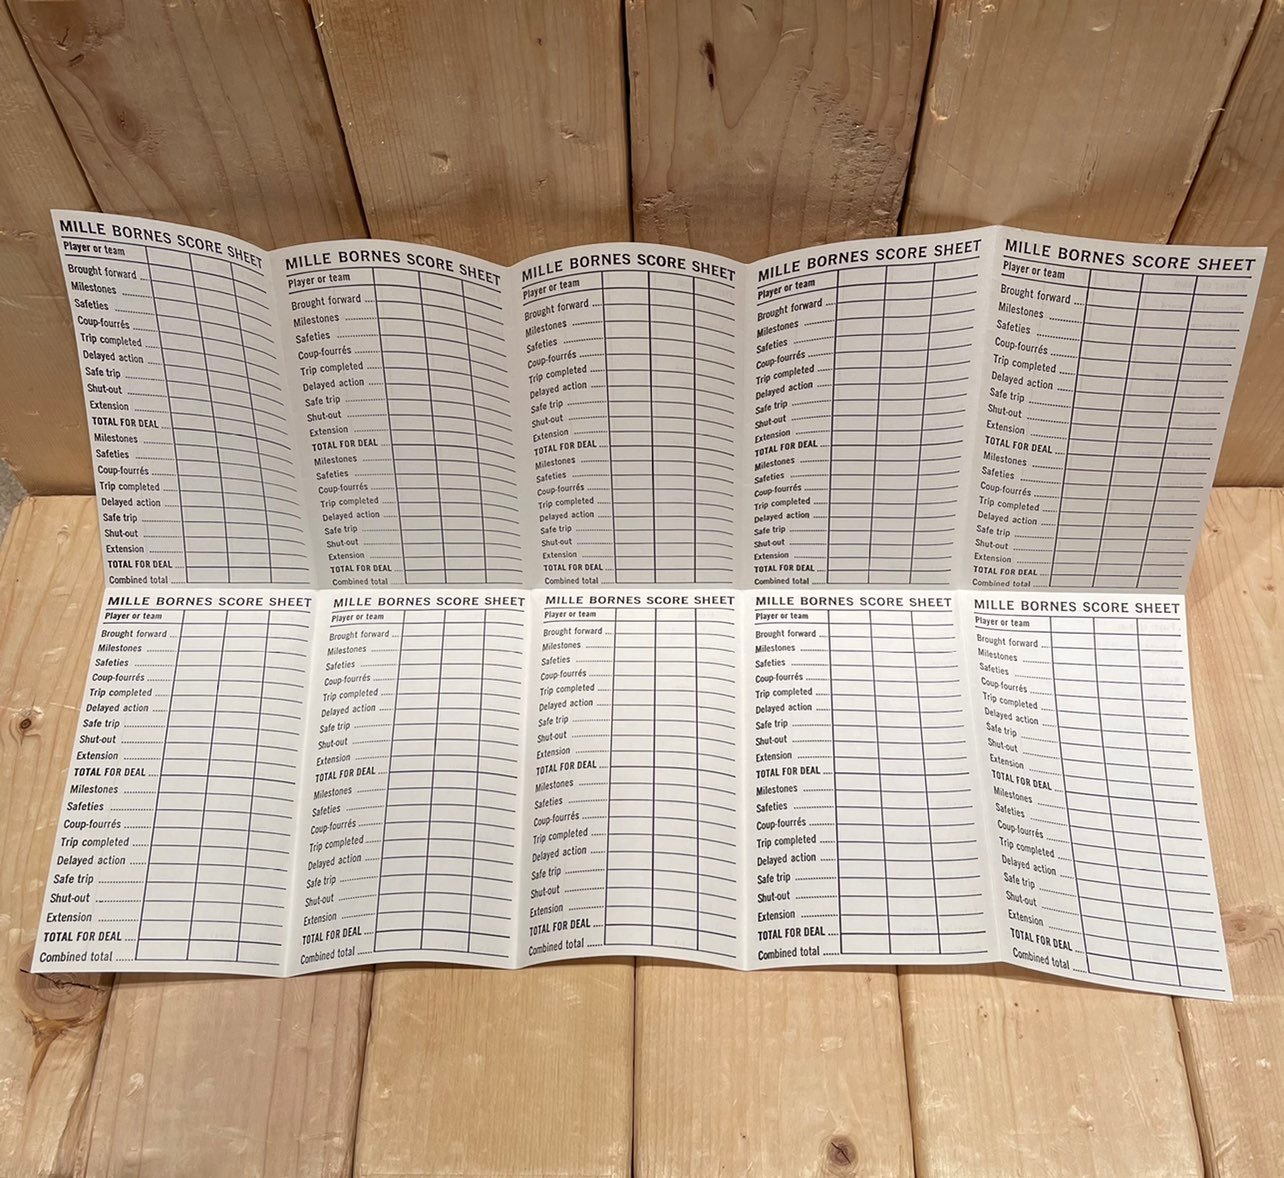 MILLE BORNES SCORE SHEET
Player or team
Brought forward
Milestones
Safeties
Coup-fourrés
Trip completed
Delayed action
Safe trip
Shut-out
Extension
TOTAL FOR DEAL
Milestones
Safeties
Coup-fourrés
Trip completed
Delayed action
Safe trip
Shut-out
Extension
TOTAL FOR DEAL
Combined total
MILLE BORNES SCORE SHEET
Player or team
Brought forward
Milestones
Safeties
Coup-fourrés
Trip completed
Delayed action
Safe trip
Shut-out
Extension
TOTAL FOR DEAL
Milestones
Safeties
Coup-fourrés
Trip completed
Delayed action
Safe trip
Shut-out
Extension
TOTAL FOR DEAL
Combined total
MILLE BORNES SCORE SHEET
Player or team
Brought forward
Milestones
Safeties
Coup-fourrés
Trip completed
Delayed action
Safe trip
Shut-out
Extension
TOTAL FOR DEAL
Milestones
Safeties
Coup-fourrés
Trip completed
Delayed action
Safe trip
Shut-out
Extension
TOTAL FOR DEAL
Combined total
MILLE BORNES SCORE SHEET
Player or team
Brought forward
Milestones
Safeties
Coup-fourrés
Trip completed
Delayed action
Safe trip
Shut-out
Extension
TOTAL FOR DEAL
Milestones
Safeties
Coup-fourrés
Trip completed
Delayed action
Safe trip
Shut-out
Extension
TOTAL FOR DEAL
Combined total
MILLE BORNES SCORE SHEET
Player or team
Brought forward
Milestones
Safeties
Coup-fourrés
Trip completed
Delayed action
Safe trip
Shut-out
Extension
TOTAL FOR DEAL
Milestones
Safeties
Coup-fourrés
Trip completed
Delayed action
Safe trip
Shut-out
Extension
TOTAL FOR DEAL
Combined total
MILLE BORNES SCORE SHEET
Player or team
Brought forward
Milestones
Safeties
Coup-fourrés
Trip completed
Delayed action
Safe trip
Shut-out
Extension
TOTAL FOR DEAL
Milestones
Safeties
Coup-fourrés
Trip completed
Delayed action
Safe trip
Shut-out
Extension
TOTAL FOR DEAL
Combined total
MILLE BORNES SCORE SHEET
Player or team
Brought forward
Milestones
Safeties
Coup-fourrés
Trip completed
Delayed action
Safe trip
Shut-out
Extension
TOTAL FOR DEAL
Milestones
Safeties
Coup-fourrés
Trip completed
Delayed action
Safe trip
Shut-out
Extension
TOTAL FOR DEAL
Combined total
MILLE BORNES SCORE SHEET
Player or team
Brought forward
Milestones
Safeties
Coup-fourrés
Trip completed
Delayed action
Safe trip
Shut-out
Extension
TOTAL FOR DEAL
Milestones
Safeties
Coup-fourrés
Trip completed
Delayed action
Safe trip
Shut-out
Extension
TOTAL FOR DEAL
Combined total
MILLE BORNES SCORE SHEET
Player or team
Brought forward
Milestones
Safeties
Coup-fourrés
Trip completed
Delayed action
Safe trip
Shut-out
Extension
TOTAL FOR DEAL
Milestones
Safeties
Coup-fourrés
Trip completed
Delayed action
Safe trip
Shut-out
Extension
TOTAL FOR DEAL
Combined total
MILLE BORNES SCORE SHEET
Player or team
Brought forward
Milestones
Safeties
Coup-fourrés
Trip completed
Delayed action
Safe trip
Shut-out
Extension
TOTAL FOR DEAL
Milestones
Safeties
Coup-fourrés
Trip completed
Delayed action
Safe trip
Shut-out
Extension
TOTAL FOR DEAL
Combined total